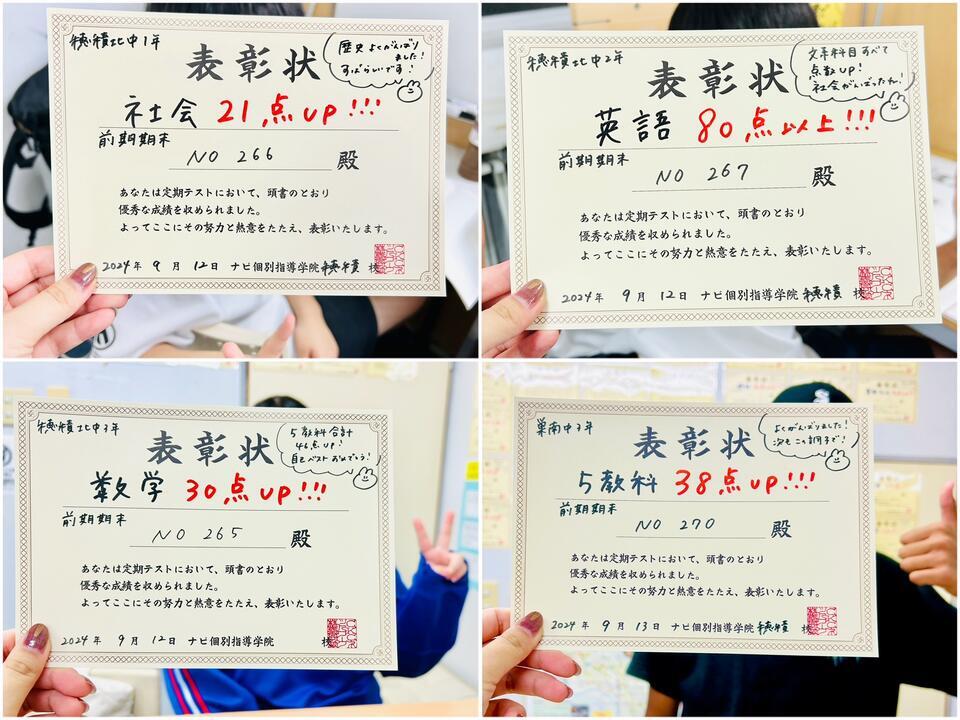 穂積北中1年
表彰状
歴史よくがんばり
ました!
すばらしいです!
社会 21点up!!!
前期期末
NO 266 殿
あなたは定期テストにおいて、頭書のとおり
優秀な成績を収められました。
よってここにその努力と熱意をたたえ、表彰いたします。
2024年 9月 12日 ナビ個別指導学院 穂積 校
穂積北中2年
表彰状
文系科目すべて
点数UP!
社会がんばったね!
英語 80点以上!!!
前期期末
NO 267 殿
あなたは定期テストにおいて、頭書のとおり
優秀な成績を収められました。
よってここにその努力と熱意をたたえ、表彰いたします。
2024年 9月 12日 ナビ個別指導学院 穂積 校
穂積北中3年
表彰状
5教科合計
41点UP!
自己ベストおめでとう!
数学 30点up!!!
前期期末
NO 265 殿
あなたは定期テストにおいて、頭書のとおり
優秀な成績を収められました。
よってここにその努力と熱意をたたえ、表彰いたします。
2024年 9月 12日 ナビ個別指導学院 校
巣南中3年
表彰状
よくがんばりました!
次もこの調子で!
5教科 38点up!!!
前期期末
NO 270 殿
あなたは定期テストにおいて、頭書のとおり
優秀な成績を収められました。
よってここにその努力と熱意をたたえ、表彰いたします。
2024年 9月 13日 ナビ個別指導学院 穂積 校